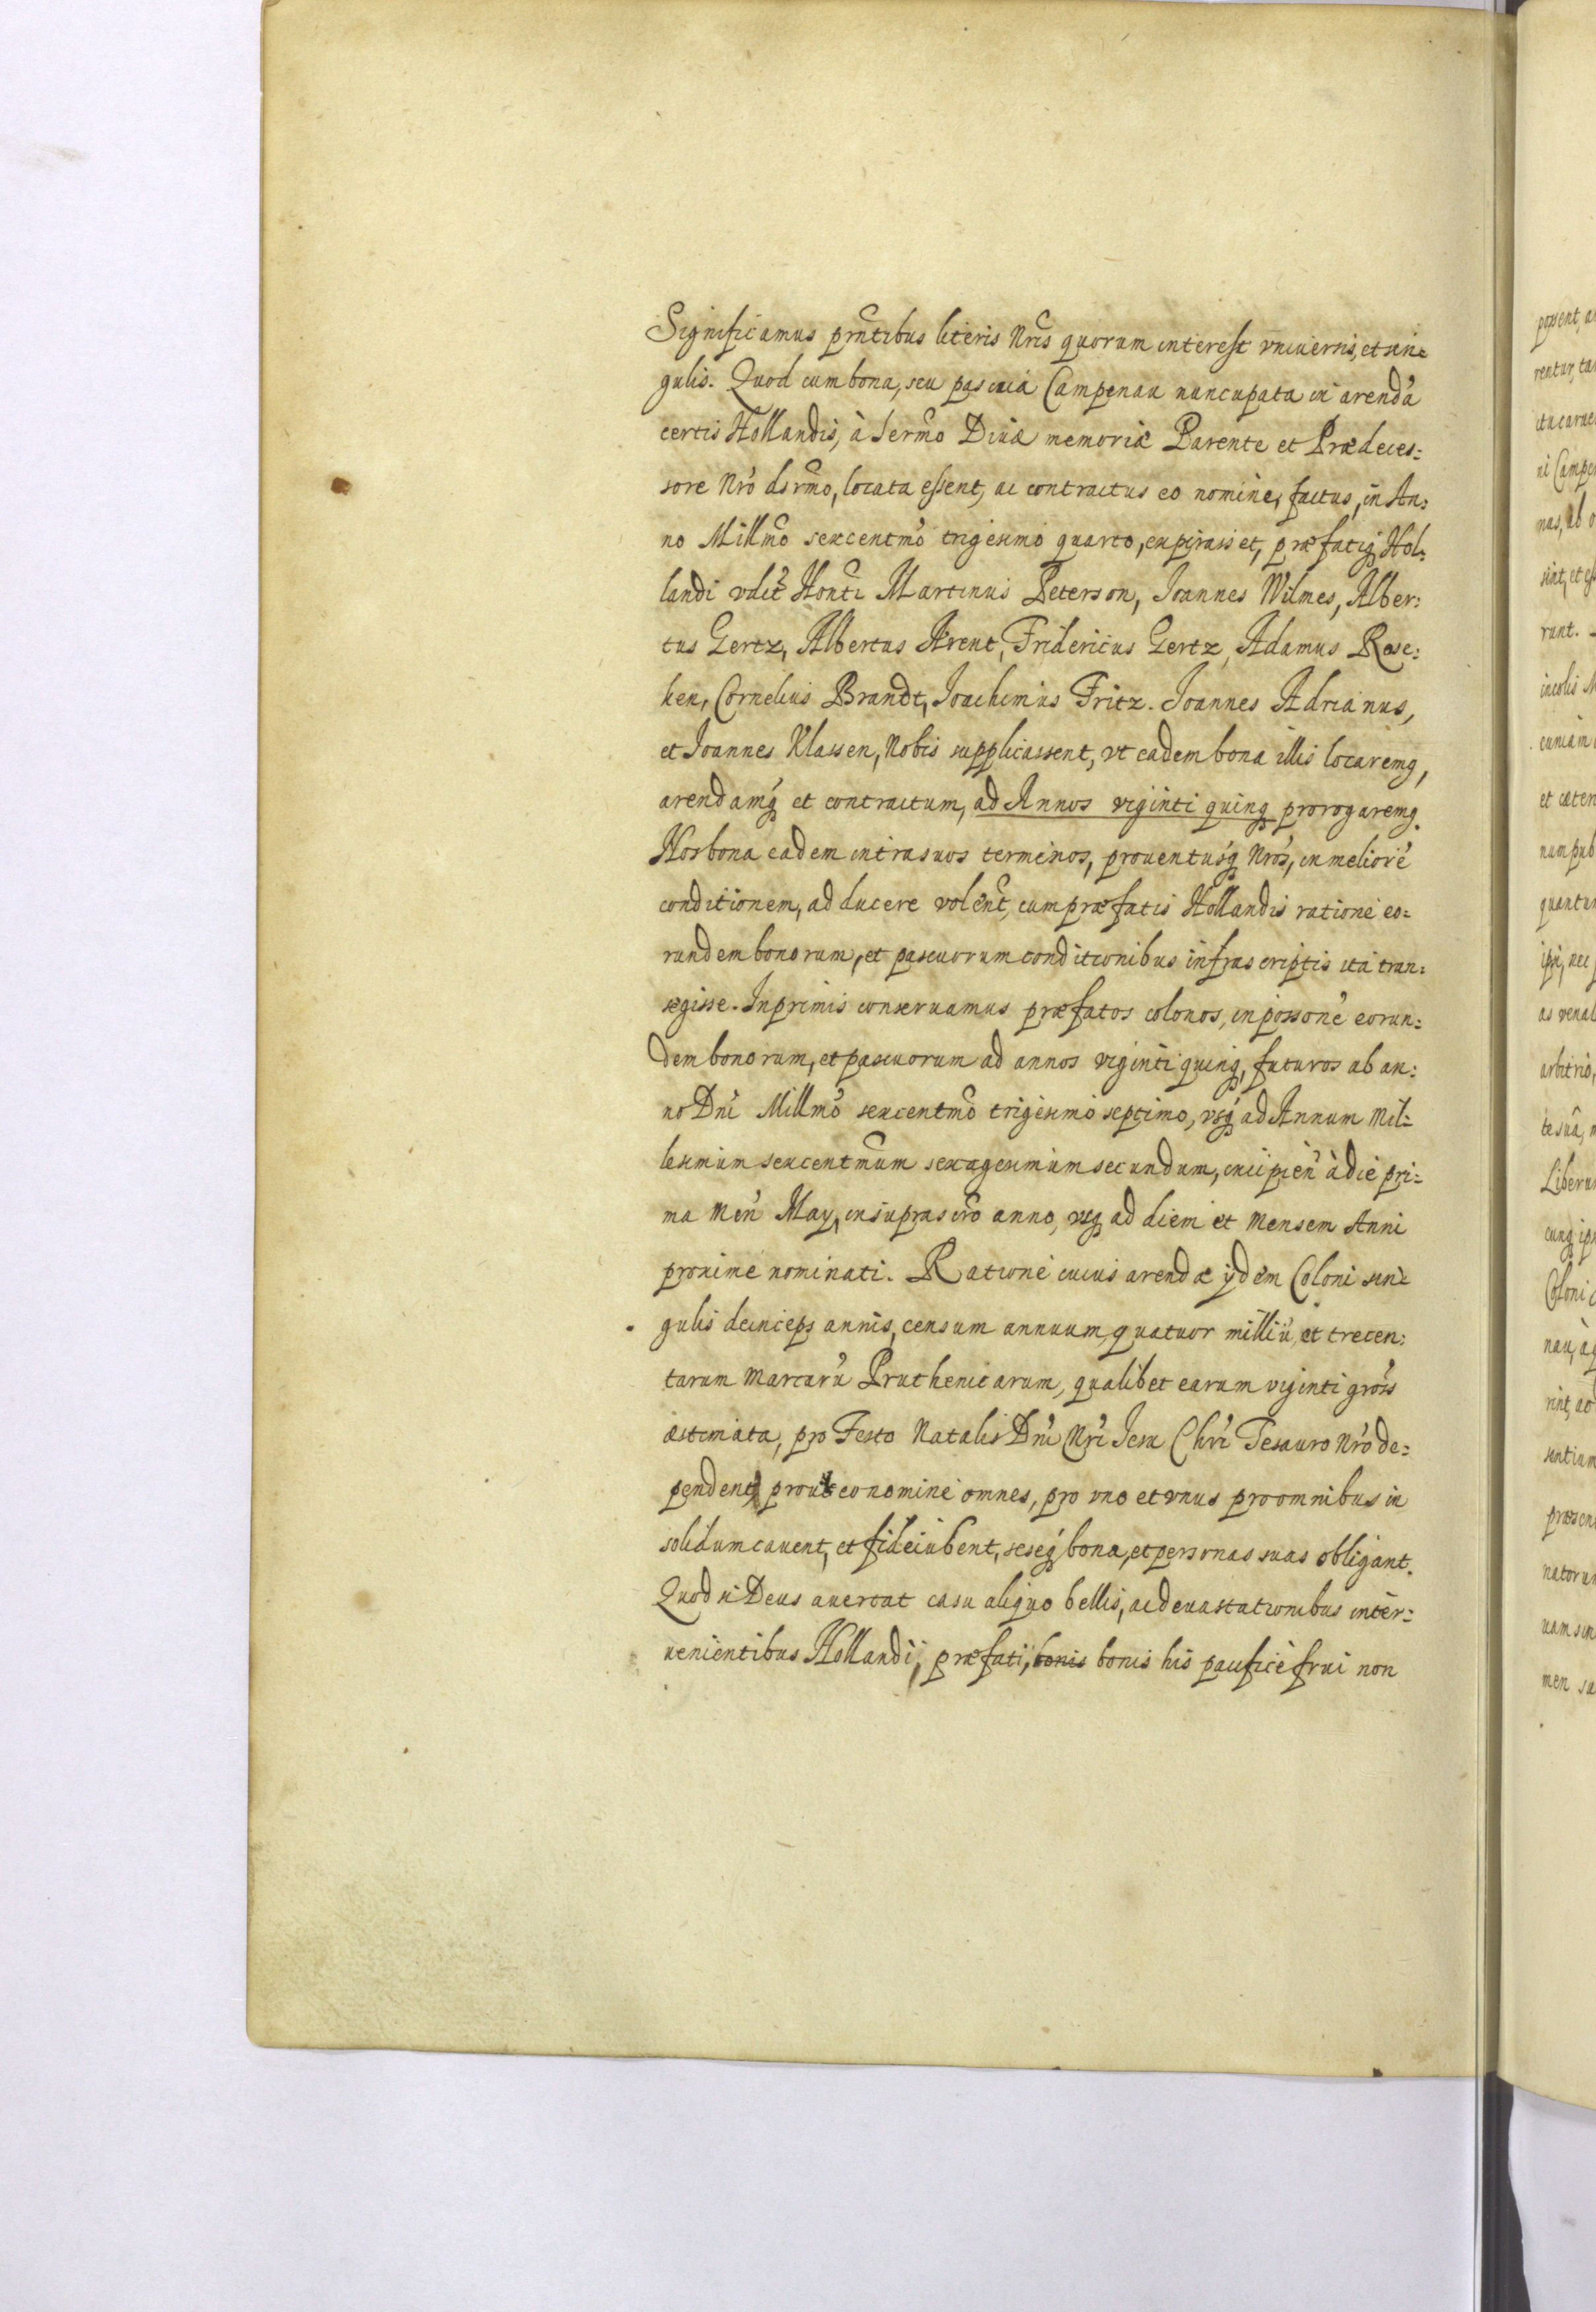 Significamus pñtibus literis Nr̃is quorum interest vniuersis, et sin=
gulis. Quod cum bona, seu pascua Campenau nuncupata in arendã
certis Hollandis, à Serm̃o Diuæ memoriæ Parente et Prædeces=
sore Nrõ dsrm̃o, locata essent, ac contractus eo nomine, factus, in An=
no Millm̃o sexcentm̃o trigesimo quarto, expirasset, præfatiq̃ Hol=
landi vdit̃ Hont̃i Martinus Peterson, Ioannes Wilmes, Alber=
tus Gertz, Albertus Arent, Fridericus Gertz, Adamus Rose=
ken, Cornelius Brandt, Ioachimus Fritz. Ioannes Adrianus,
et Ioannes Klassen, Nobis supplicassent, vt eadem bona illis locaremq,
arendamq́ et contractum, ad Annos viginti quinq prorogaremq.
Nos bona eadem intra suos terminos, prouentusq́ Nrõs, in meliorẽ
conditionem, adducere volent̃, cum præfatis Hollandis ratione eo=
rundem bonorum, et pascuorum conditionibus infrascriptis ita tran=
segisse. Inprimis conseruamus præfatos colonos, in possonẽ eorun=
dem bonorum, et pascuorum ad annos viginti quinq, futuros ab an=
no Dnĩ Millmõ sexcentm̃o trigesimo septimo, vsq́ ad Annum Mil=
lesimum sexcentm̃um sexagesimum secundum, incipieñ à die pri=
ma Meñ May, in suprascr̃o anno, vsq ad diem et Mensem Anni
proxime nominati. Ratione cuius arendæ ijdem Coloni sin=
gulis deinceps annis, censum annuum quatuor milliũ, et trecen=
tarum Marcarũ Pruthenicarum, qualibet earum viginti gross̃
æstimata, pro Festo Natalis Dnĩ Nrĩ Iesu Chrĩ Tesauro Nrõ de=
pendent, prout eo nomine omnes, pro vno et vnus pro omnibus in
solidum cauent, et fideiubent, seseq́ bona, et personas suas obligant.
Quod si Deus auertat casu aliquo bellis, ac deuastationibus inter=
uenientibus Hollandi, præfati, bonis bonis his pacifice frui non